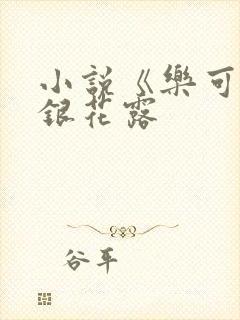 小說《樂可
銀花露
谷平